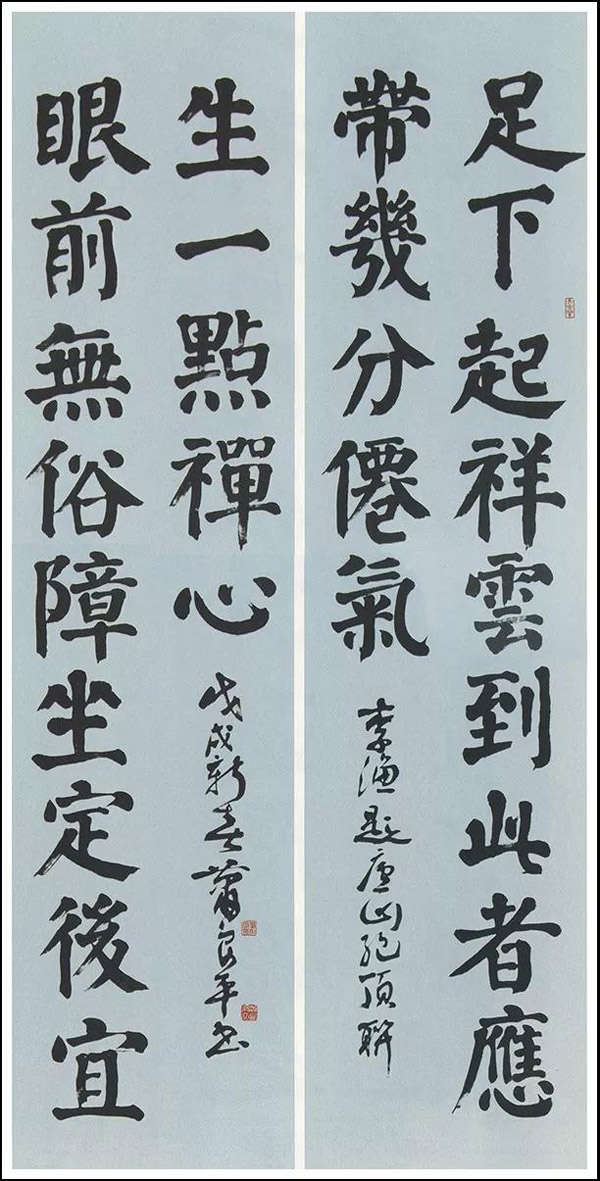 足下起祥雲到此者應
帶幾分僊氣
李漁題廬山絕頂聯
眼前無俗障坐定後宜
生一點禪心
戊戌新春蕭良平書